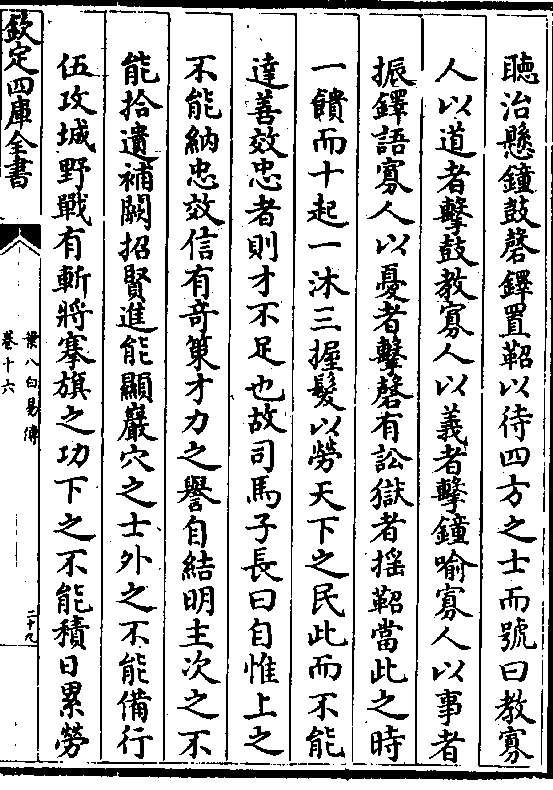 聽治懸鐘鼓磬鐸置鞀以待四方之士而號曰教寡
人以道者擊鼓教寡人以義者擊鐘喻寡人以事者
振鐸語寡人以憂者擊磬有訟獄者揺鞀當此之時
一饋而十起一沐三握髮以勞天下之民此而不能
達善效忠者則才不足也故司馬子長曰自惟上之
不能納忠效信有竒策才力之譽自結明主次之不
能拾遺補闕招賢進能顯巖穴之士外之不能備行
伍攻城野戰有斬將搴旗之功下之不能積日累勞
欽定四庫全書
葉八白易傳
卷十六
二十九